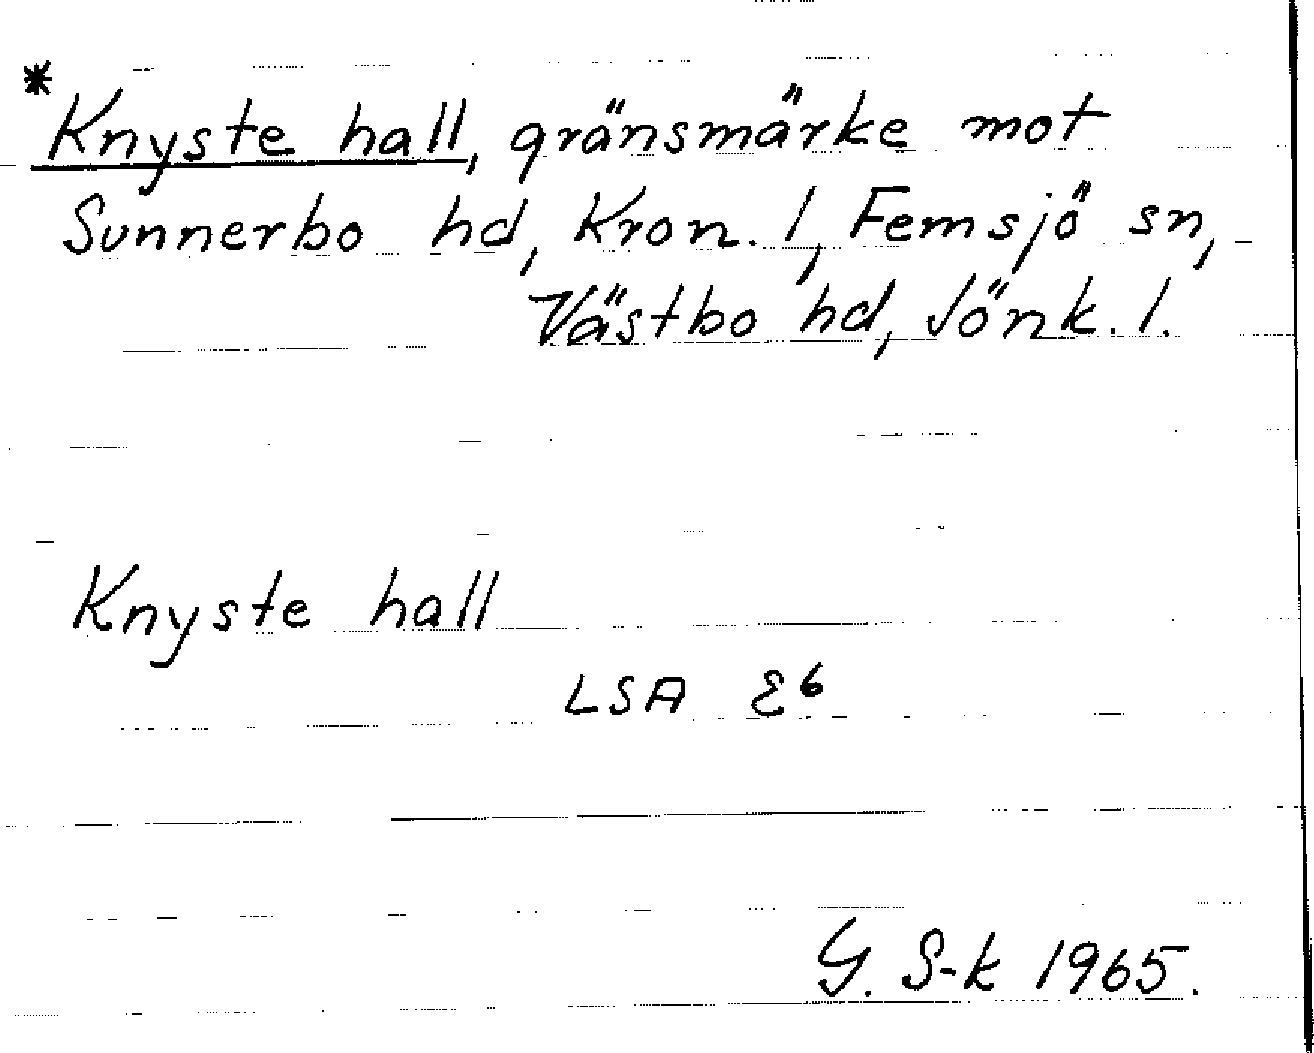 * Knyste hall, gränsmärke mot
Sunnerbo hd, Kron. l, Femsjö sn,
Västbo hd, Jönk. l.
Knyste hall
LSA E6
G. S-k 1965.